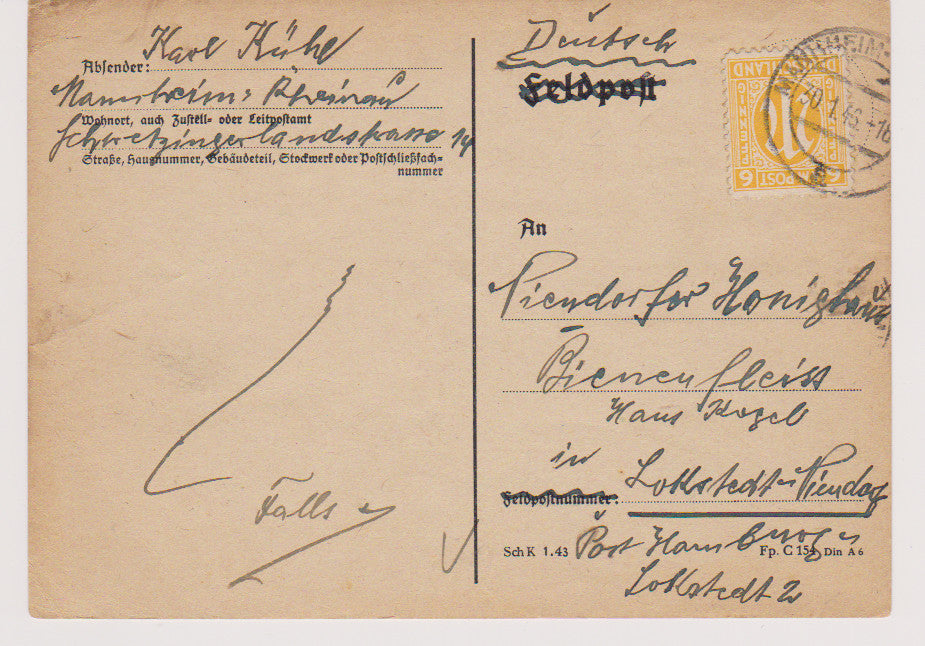 Karl Kühl
Absender:
Mannheim-Rheinau
Wohnort, auch Zustell- oder Leitpostamt
Schwetzingerlandstrasse 14
Straße, Hausnummer, Gebäudeteil, Stockwerk oder Postschließfach-
nummer
Falls
Deutsch
Feldpost
DEUTSCHLAND
PFENNIG
A.M. POST
6 6
MANNHEIM
30.1.46.-16
An
Niendorfer Honighaus
Bienenfleiss
Hans Kogel
in
Lokstedt-Niendorf
Feldpostnummer:
Post Hamburg-
Lokstedt 2
Sch K 1.43
Fp. C 154 Din A 6